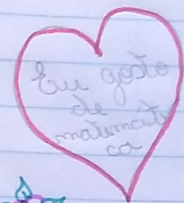 Eu gosto
de
matemati
ca